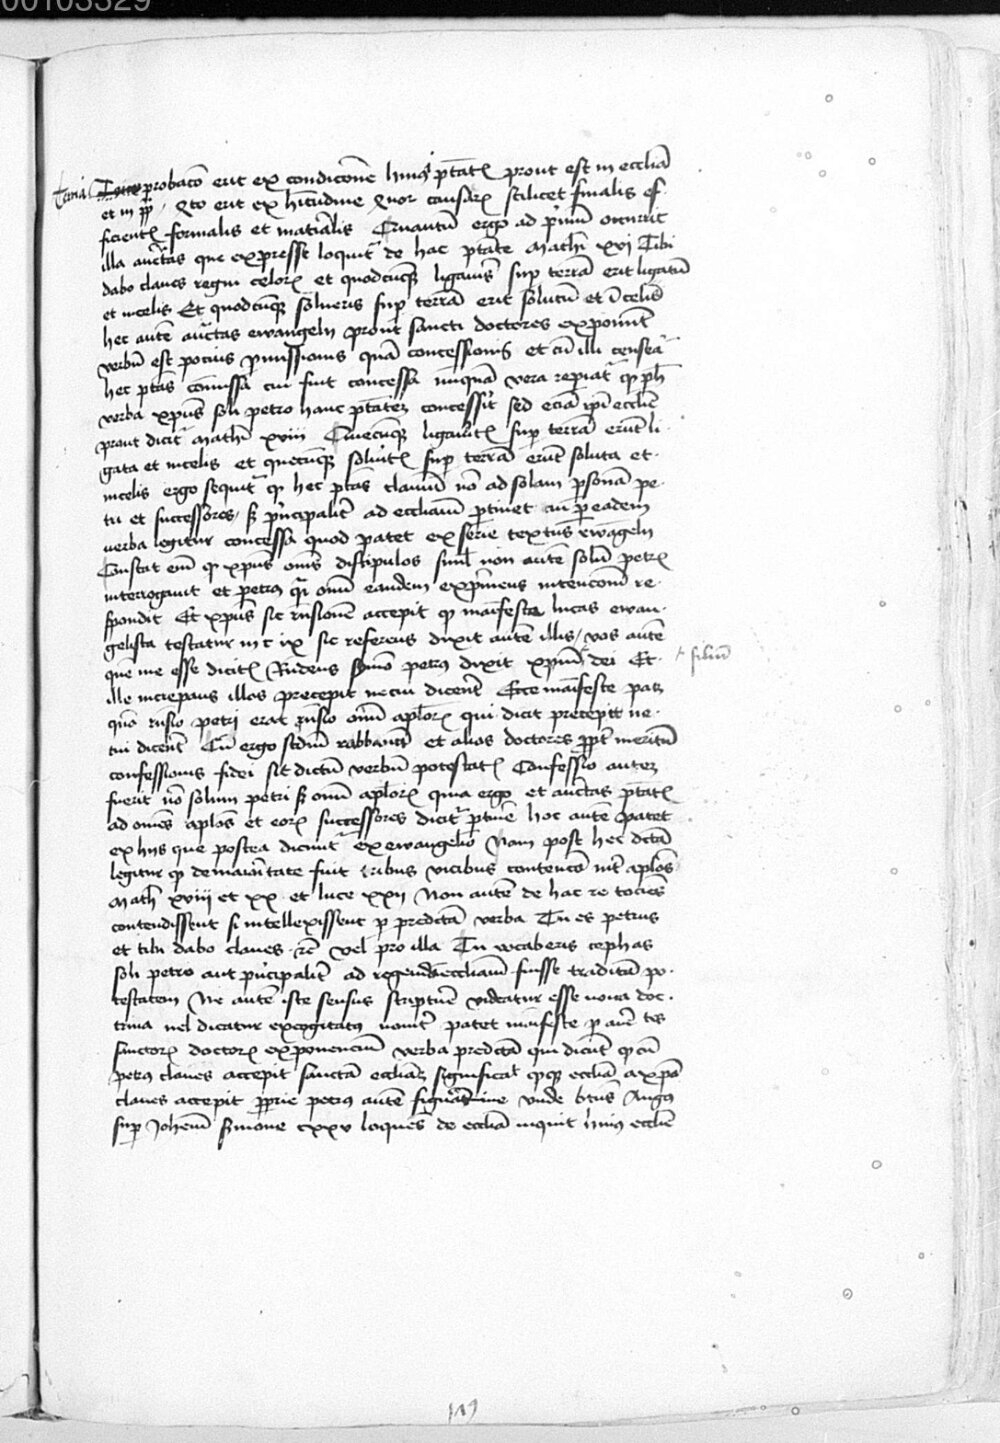 00103329
tercia probaco erit ex condicione huius ptatis prout est in ecclia
et in pp, Qto erit ex hitudine Quor causarum scilicet finalis ef-
ficientis formalis et materialis Quantum ergo ad primum occurrit
illa auctas que expresse loquitur de hac ptate Mathi xvi Tibi
dabo claues regni celorum et quodcumque ligaueris sup terra erit ligatum
et in celis Et quodcumque solueris sup terra erit solutum et in celis
hec autem auctas ewangelii prout sancti doctores exponunt
verbum est pocius promissionis quam concessionis et cum illi
hec ptas commissa cui fuit concessa nunquam vera reperiatur q ph
verba xpus soli petro hanc ptatem concessit sed eciam ipi ecclie
prout dicitur Mathi xviii Quecumque ligaueritis sup terra erunt li-
gata et in celis et quecumque solueritis sup terra erunt soluta et
in celis ergo sequitur q hec ptas clauium non ad solam personam pe-
tri et successores, sed principaliter ad eccliam pertinet cui per eadem
verba legitur concessa quod patet ex serie textus ewangelii
Constat enim q xpus omnes discipulos simul non autem solum petrum
interrogauit et petrus quasi omnium eandem exprimens intencionem re-
spondit Et xpus sic responsionem accepit q manifeste lucas ewan-
gelista testatur in c ix sic referens dixit autem illis, vos autem
quem me esse dicitis Respondens symon petrus dixit xpum dei Et
filium
ille increpans illos precepit ne cui dicerent Ecce manifeste patet
quomodo responsio petri erat responsio omnium aplorum qui dicit precepit ne
cui dicerent Cum ergo secundum rabbanum et alios doctores propter meritum
confessionis fidei sit dictum verbum potestatis Confessio autem
fuerit non solum petri sed omnium aplorum ergo et auctas ptatis
ad omnes aplos et eorum successores dicitur pertinere hoc autem patet
ex hiis que postea dicuntur ex ewangelio Nam post hec dicta
legitur q de maioritate fuit tribus vicibus contencio inter aplos
Math xviii et xx et luce xxii Non autem de hac re tociens
contendissent si intellexissent per predicta verba Tu es petrus
et tibi dabo claues etc vel pro illa Tu vocaberis cephas
soli petro aut principaliter ad regendam eccliam fuisse traditam po-
testatem Ne autem iste sensus scripture videatur esse noua doc-
trina uel dicatur excogitatus nouiter patet manifeste per auctes
sanctorum doctorum exponencium verba predicta qui dicunt q cum
petrus claues accepit sanctam eccliam significat q ecclia a xpo
claues accepit proprie petrus autem figuratiue vnde btus Augus
sup Johem Smone cxxv loquens de ecclia inquit huius ecclie